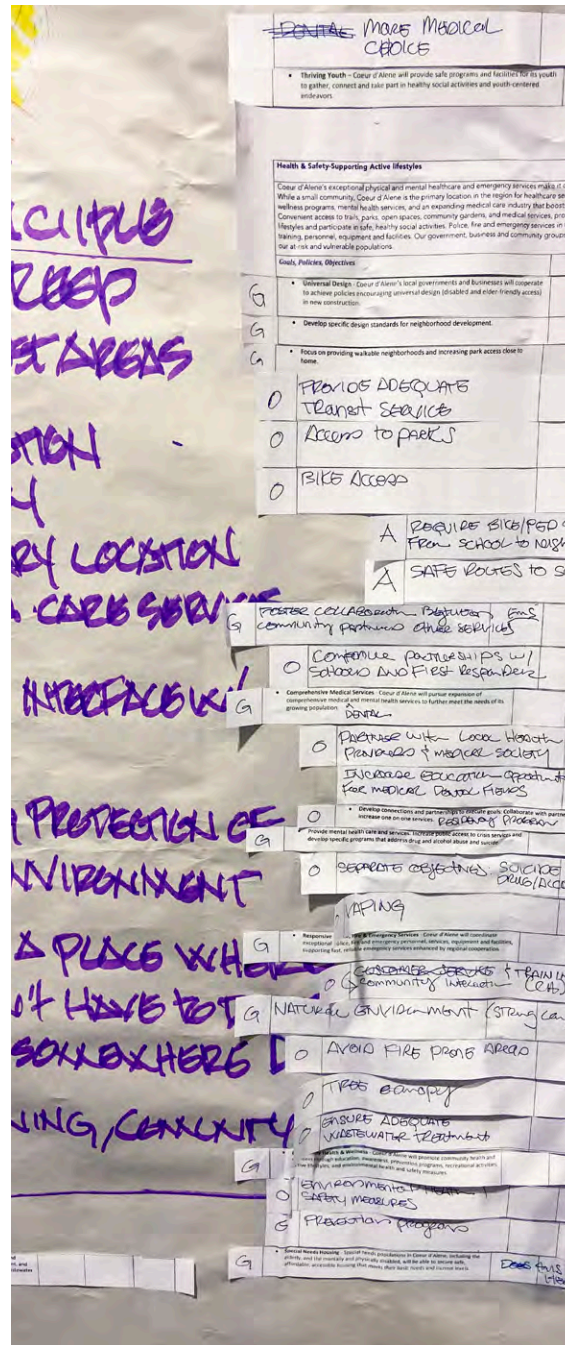 MORE MEDICAL
CHOICE
• Thriving Youth – Coeur d'Alene will provide safe programs and facilities for its youth
to gather, connect and take part in healthy social activities and youth-centered
endeavors.
Health & Safety-Supporting Active lifestyles
Coeur d'Alene's exceptional physical and mental healthcare and emergency services make it
While a small community, Coeur d'Alene is the primary location in the region for healthcare se
wellness programs, mental health services, and an expanding medical care industry that boost
Convenient access to trails, parks, open spaces, community gardens, and medical services, pro
lifestyles and participate in safe, healthy social activities. Police, fire and emergency services in
training, personnel, equipment and facilities. Our government, business and community group
our at-risk and vulnerable populations.
Goals, Policies, Objectives
G • Universal Design - Coeur d'Alene's local governments and businesses will cooperate
to achieve policies encouraging universal design (disabled and elder-friendly access)
in new construction.
G • Develop specific design standards for neighborhood development.
G • Focus on providing walkable neighborhoods and increasing park access close to
home.
O PROVIDE ADEQUATE
TRANSIT SERVICE
O ACCESS TO PARKS
O BIKE ACCESS
A REQUIRE BIKE/PED
FROM SCHOOL TO
A SAFE ROUTES TO S
G FOSTER COLLABORATION BETWEEN EMS
community partners other SERVICES
O PARTNERSHIPS W/
SCHOOLS AND FIRST RESPONDERS
G • Comprehensive Medical Services - Coeur d'Alene will pursue expansion of
comprehensive medical and mental health services to further meet the needs of its
growing population.
DENTAL
O PARTNER WITH LOCAL HEALTH
PROVIDERS & MEDICAL SOCIETY
INCREASE EDUCATION
FOR MEDICAL DENTAL FIELDS
O • Develop connections and partnerships to execute goals: Collaborate with partne
increase one on one services. RESIDENCY PROGRAM
G Provide mental health care and services. Increase public access to crisis services and
develop specific programs that address drug and alcohol abuse and suicide.
O SEPARATE OBJECTIVES SUICIDE
DRUG/ALCO
VAPING
G • Responsive & Emergency Services - Coeur d'Alene will coordinate
exceptional police, fire and emergency personnel, services, equipment and facilities,
supporting fast, reliable emergency services enhanced by regional cooperation.
O CUSTOMER SERVICE & TRAIN
Community Interaction
G NATURAL ENVIRONMENT
O AVOID FIRE PRONE AREAS
O TREE CANOPY
O ENSURE ADEQUATE
WASTEWATER TREATMENT
G Health & Wellness - Coeur d'Alene will promote community health and
through education, awareness, prevention programs, recreational activities,
lifestyles, and environmental health and safety measures.
O ENVIRONMENTAL HEALTH
SAFETY MEASURES
G PREVENTION PROGRAMS
G • Special Needs Housing - Special needs populations in Coeur d'Alene, including the
elderly, and the mentally and physically disabled, will be able to secure safe,
affordable, accessible housing that meets their basic needs and income levels.
DOES this
CIPLIS
REEP
ST AREAS
TION
Y
RY LOCATION
CARE SERVICE
INTERFACE W/
PROTECTION OF
NVIRONMENT
A PLACE WHERE
N'T HAVE TO
SOMEWHERE
NING, COMMUNITY